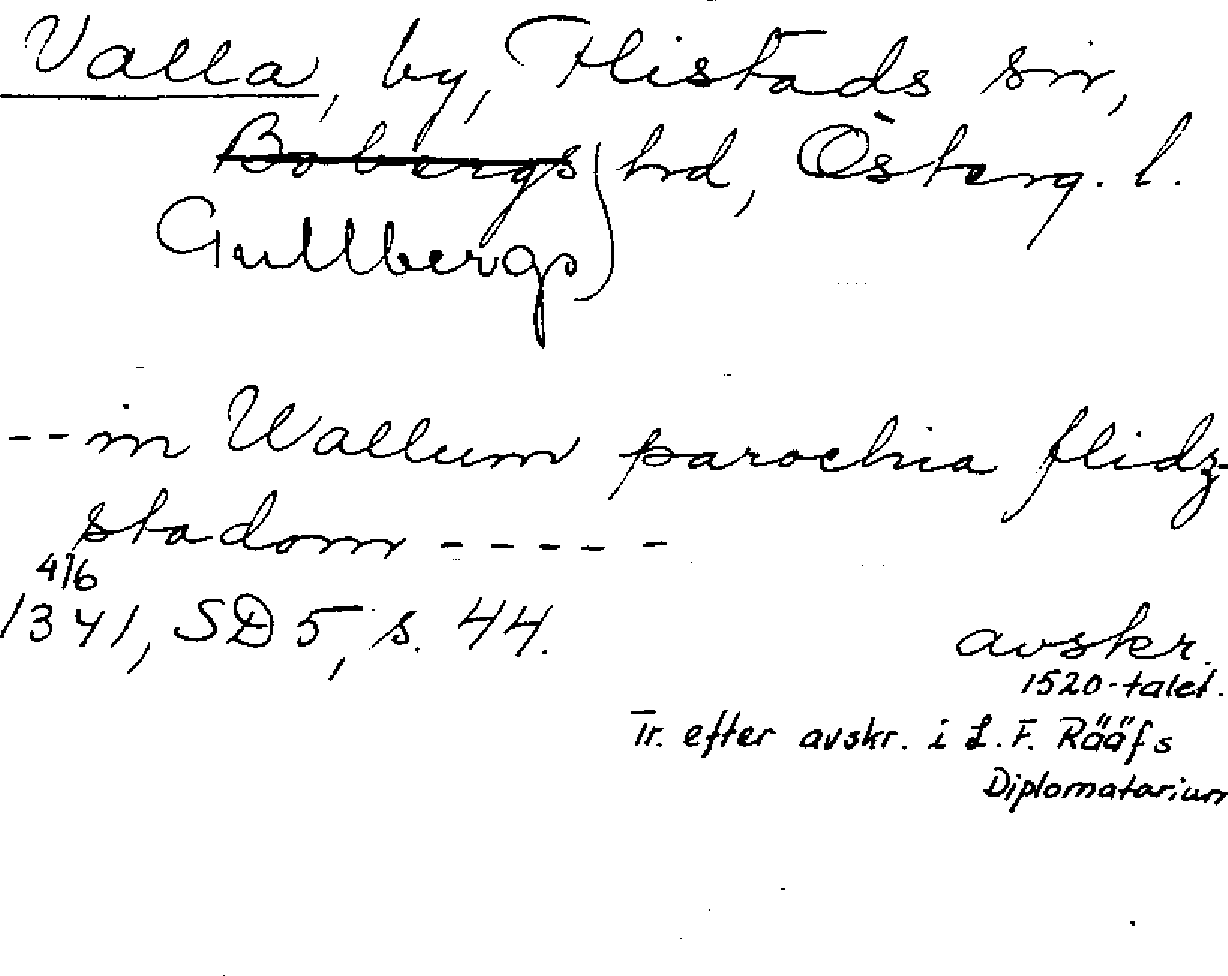 Valla, by, Flistads sn,
Bobergs) hrd, Österg. l.
Gullbergs)
-- in Wallum parochia flidz-
stadom -----
4/6
1341, SD 5, s. 44.
avskr.
1520-talet.
Tr. efter avskr. i L. F. Rääfs
Diplomatarium